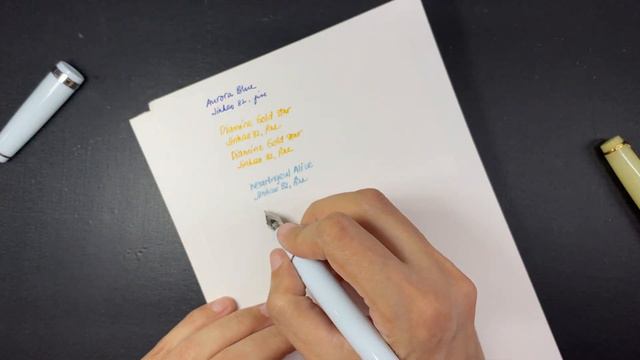 Aurora Blue
Jinhao 82, fine
Diamine Gold Star
Jinhao 82, fine
Diamine Gold Star
Jinhao 82, fine
Alive
Jinhao 82, fine